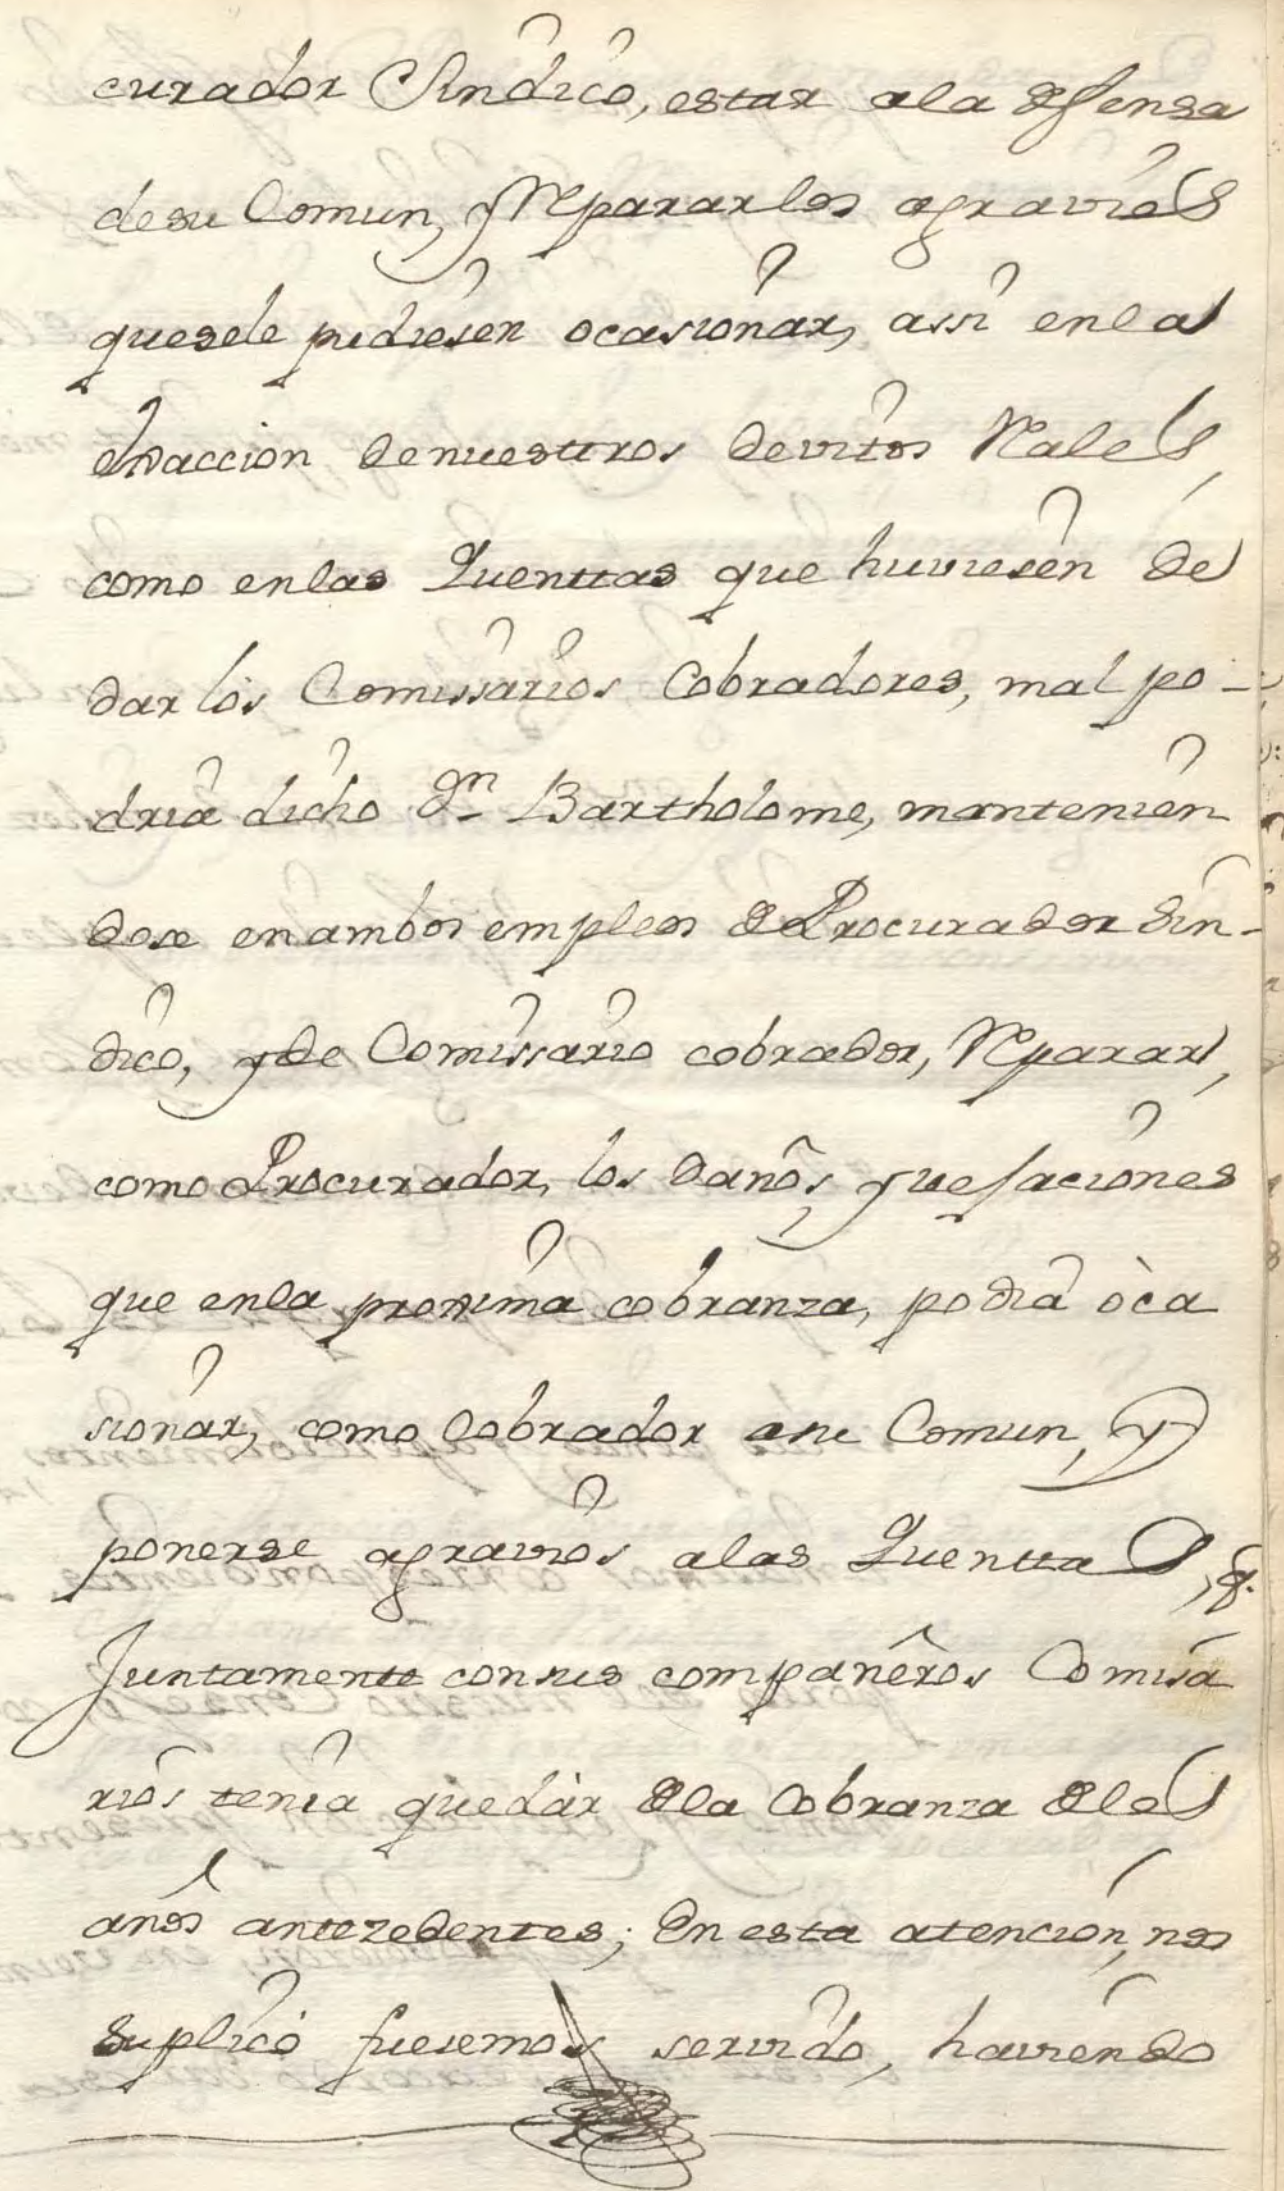 curador Sindico, estar ala defensa
desu Comun, y Reparar los agravios
quesele pudiesen ocasionar, assi enla
exaccion denuestros devitos Rales,
como enlas Quenttas que huviesen de
dar los Comissarios Cobradores, mal po-
dria dicho Dn Bartholome, mantenien
dose enambos empleos de Procurador Sin-
dico, y de Comissario cobrador, Reparar,
como Procurador, los daños, y vejaciones
que enla proxima cobranza, podia òca
sionar, como Cobrador asu Comun, y
ponerse agravios alas Quenttas, q.
Juntamente consus compañeros Comisa
rios tenia quedàr dela Cobranza delos
años antezedentes; En esta atencion, nos
suplicò fuesemos servido, haviendo